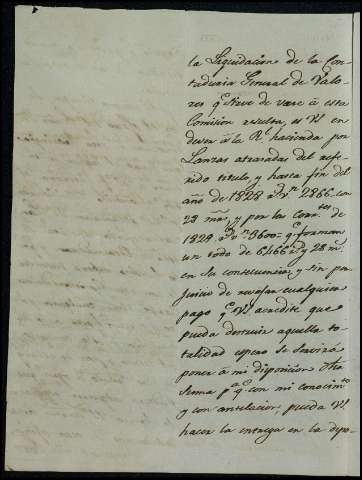 la Liquidacion de la Con-
taduria General de Valo-
res q.e sirve de vase á esta
Comision resulta, es VS en
dever á la R.l hacienda por
Lanzas atrasadas del refe-
rido titulo, y hasta fin del
año de 1828 r.s v.n 2866 con
28 mrs, y por las Corr.tes de
1829 r.s v.n 3600= q.e forman
un todo de 6466 r.s y 28 m.s
en su consecuencia, y sin per
Juicio de revajar cualquier
pago q.e VS acredite que
pueda destruir aquella to-
talidad espero se servirá
poner á mi disposicion dha
Suma p.a q.e con mi conocim.to
y con antelacion pueda VS.
hacer la entrega en la depo-